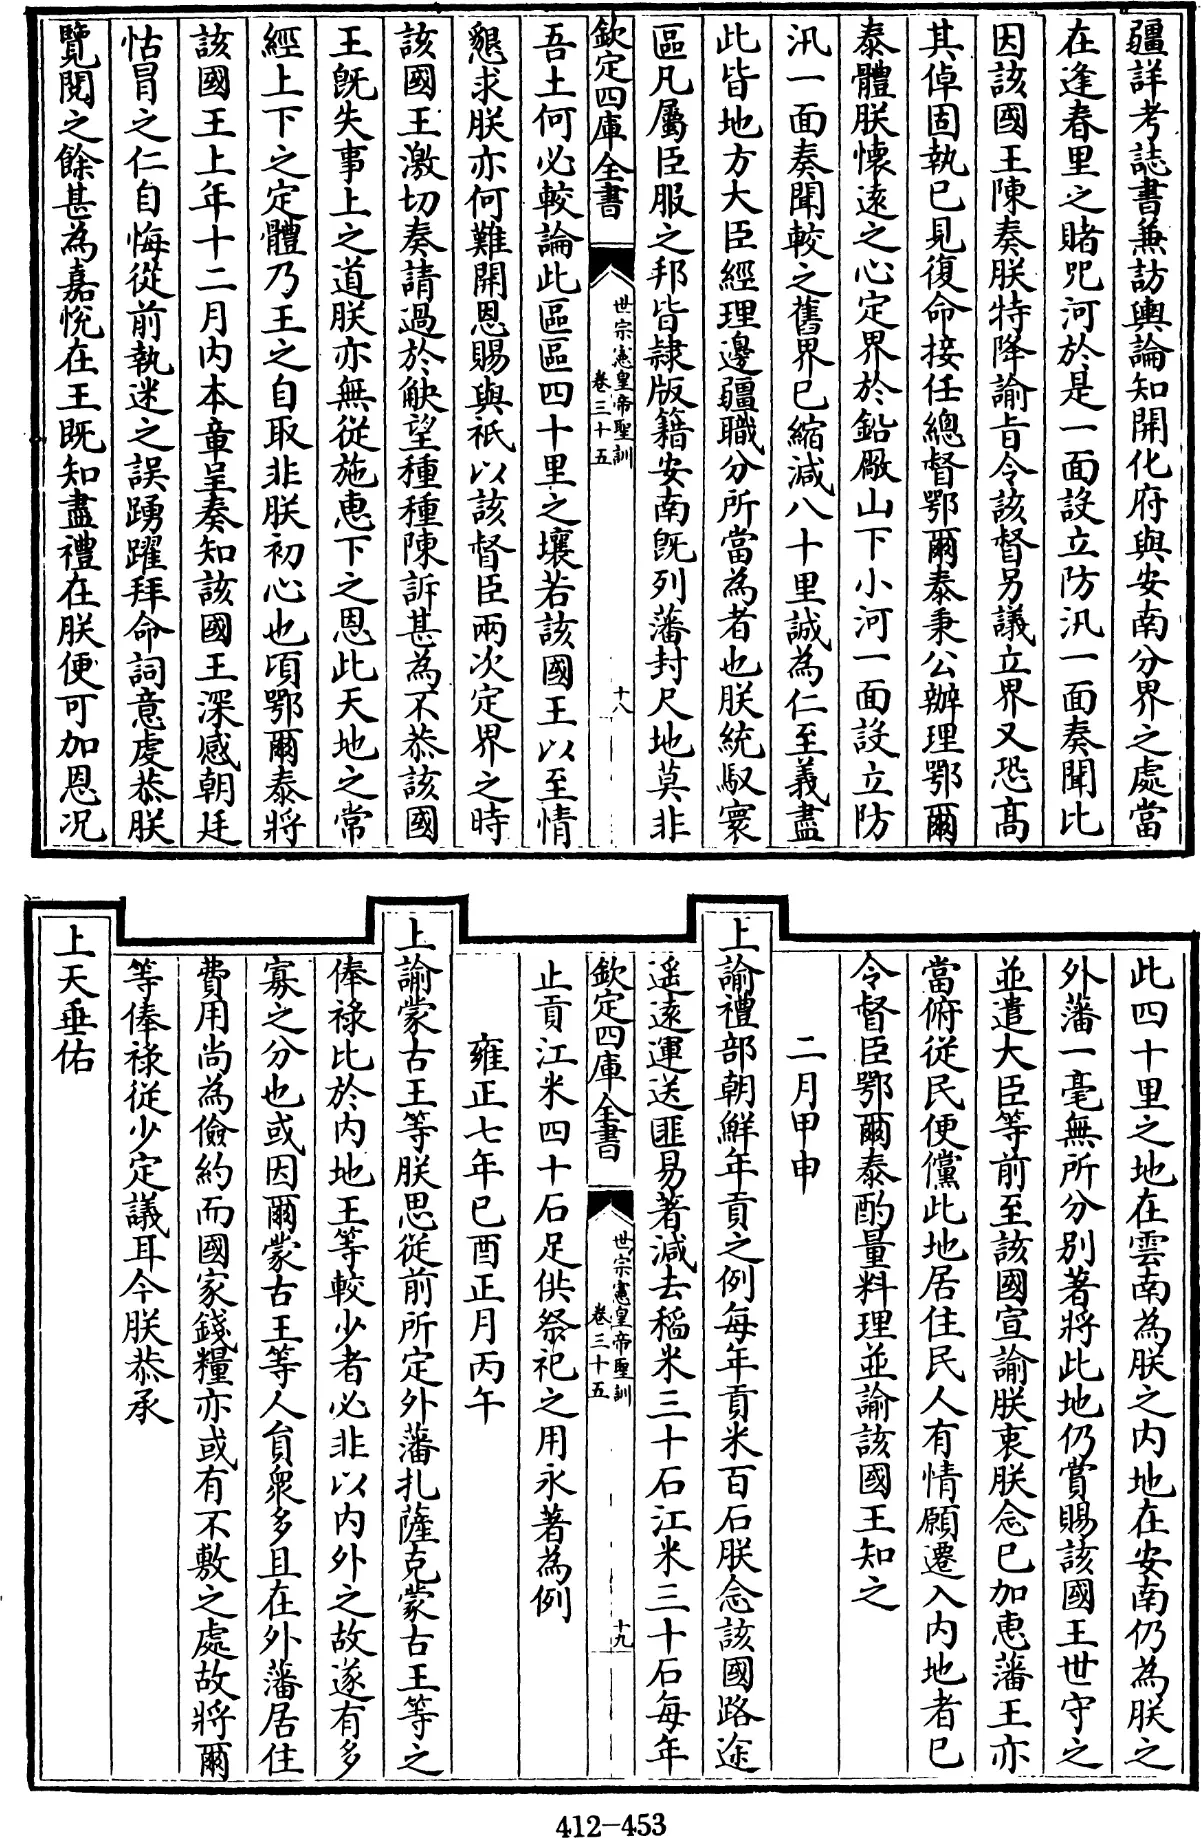 疆詳考誌書兼訪輿論知開化府與安南分界之處當
在逢春里之賭咒河於是一面設立防汛一面奏聞比
因該國王陳奏朕特降諭旨令該督另議立界又恐高
其倬固執已見復命接任總督鄂爾泰秉公辦理鄂爾
泰體朕懷遠之心定界於鉛廠山下小河一面設立防
汛一面奏聞較之舊界已縮減八十里誠為仁至義盡
此皆地方大臣經理邊疆職分所當為者也朕統馭寰
區凡屬臣服之邦皆隸版籍安南既列藩封尺地莫非
欽定四庫全書
世宗憲皇帝聖訓
卷三十五
十八
吾土何必較論此區區四十里之壤若該國王以至情
懇求朕亦何難開恩賜與祇以該督臣兩次定界之時
該國王激切奏請過於觖望種種陳訴甚為不恭該國
王既失事上之道朕亦無從施惠下之恩此天地之常
經上下之定體乃王之自取非朕初心也頃鄂爾泰將
該國王上年十二月內本章呈奏知該國王深感朝廷
怙冒之仁自悔從前執迷之誤踴躍拜命詞意虔恭朕
覽閱之餘甚為嘉悅在王既知盡禮在朕便可加恩况
此四十里之地在雲南為朕之內地在安南仍為朕之
外藩一毫無所分別著將此地仍賞賜該國王世守之
並遣大臣等前至該國宣諭朕衷朕念已加惠藩王亦
當俯從民便儻此地居住民人有情願遷入內地者已
令督臣鄂爾泰酌量料理並諭該國王知之
二月甲申
上諭禮部朝鮮年貢之例每年貢米百石朕念該國路途
遥遠運送匪易著減去稻米三十石江米三十石每年
欽定四庫全書
世宗憲皇帝聖訓
卷三十五
十九
止貢江米四十石足供祭祀之用永著為例
雍正七年已酉正月丙午
上諭蒙古王等朕思從前所定外藩扎薩克蒙古王等之
俸祿比於內地王等較少者必非以內外之故遂有多
寡之分也或因爾蒙古王等人貟衆多且在外藩居住
費用尚為儉約而國家錢糧亦或有不敷之處故將爾
等俸祿從少定議耳今朕恭承
上天垂佑
412-453